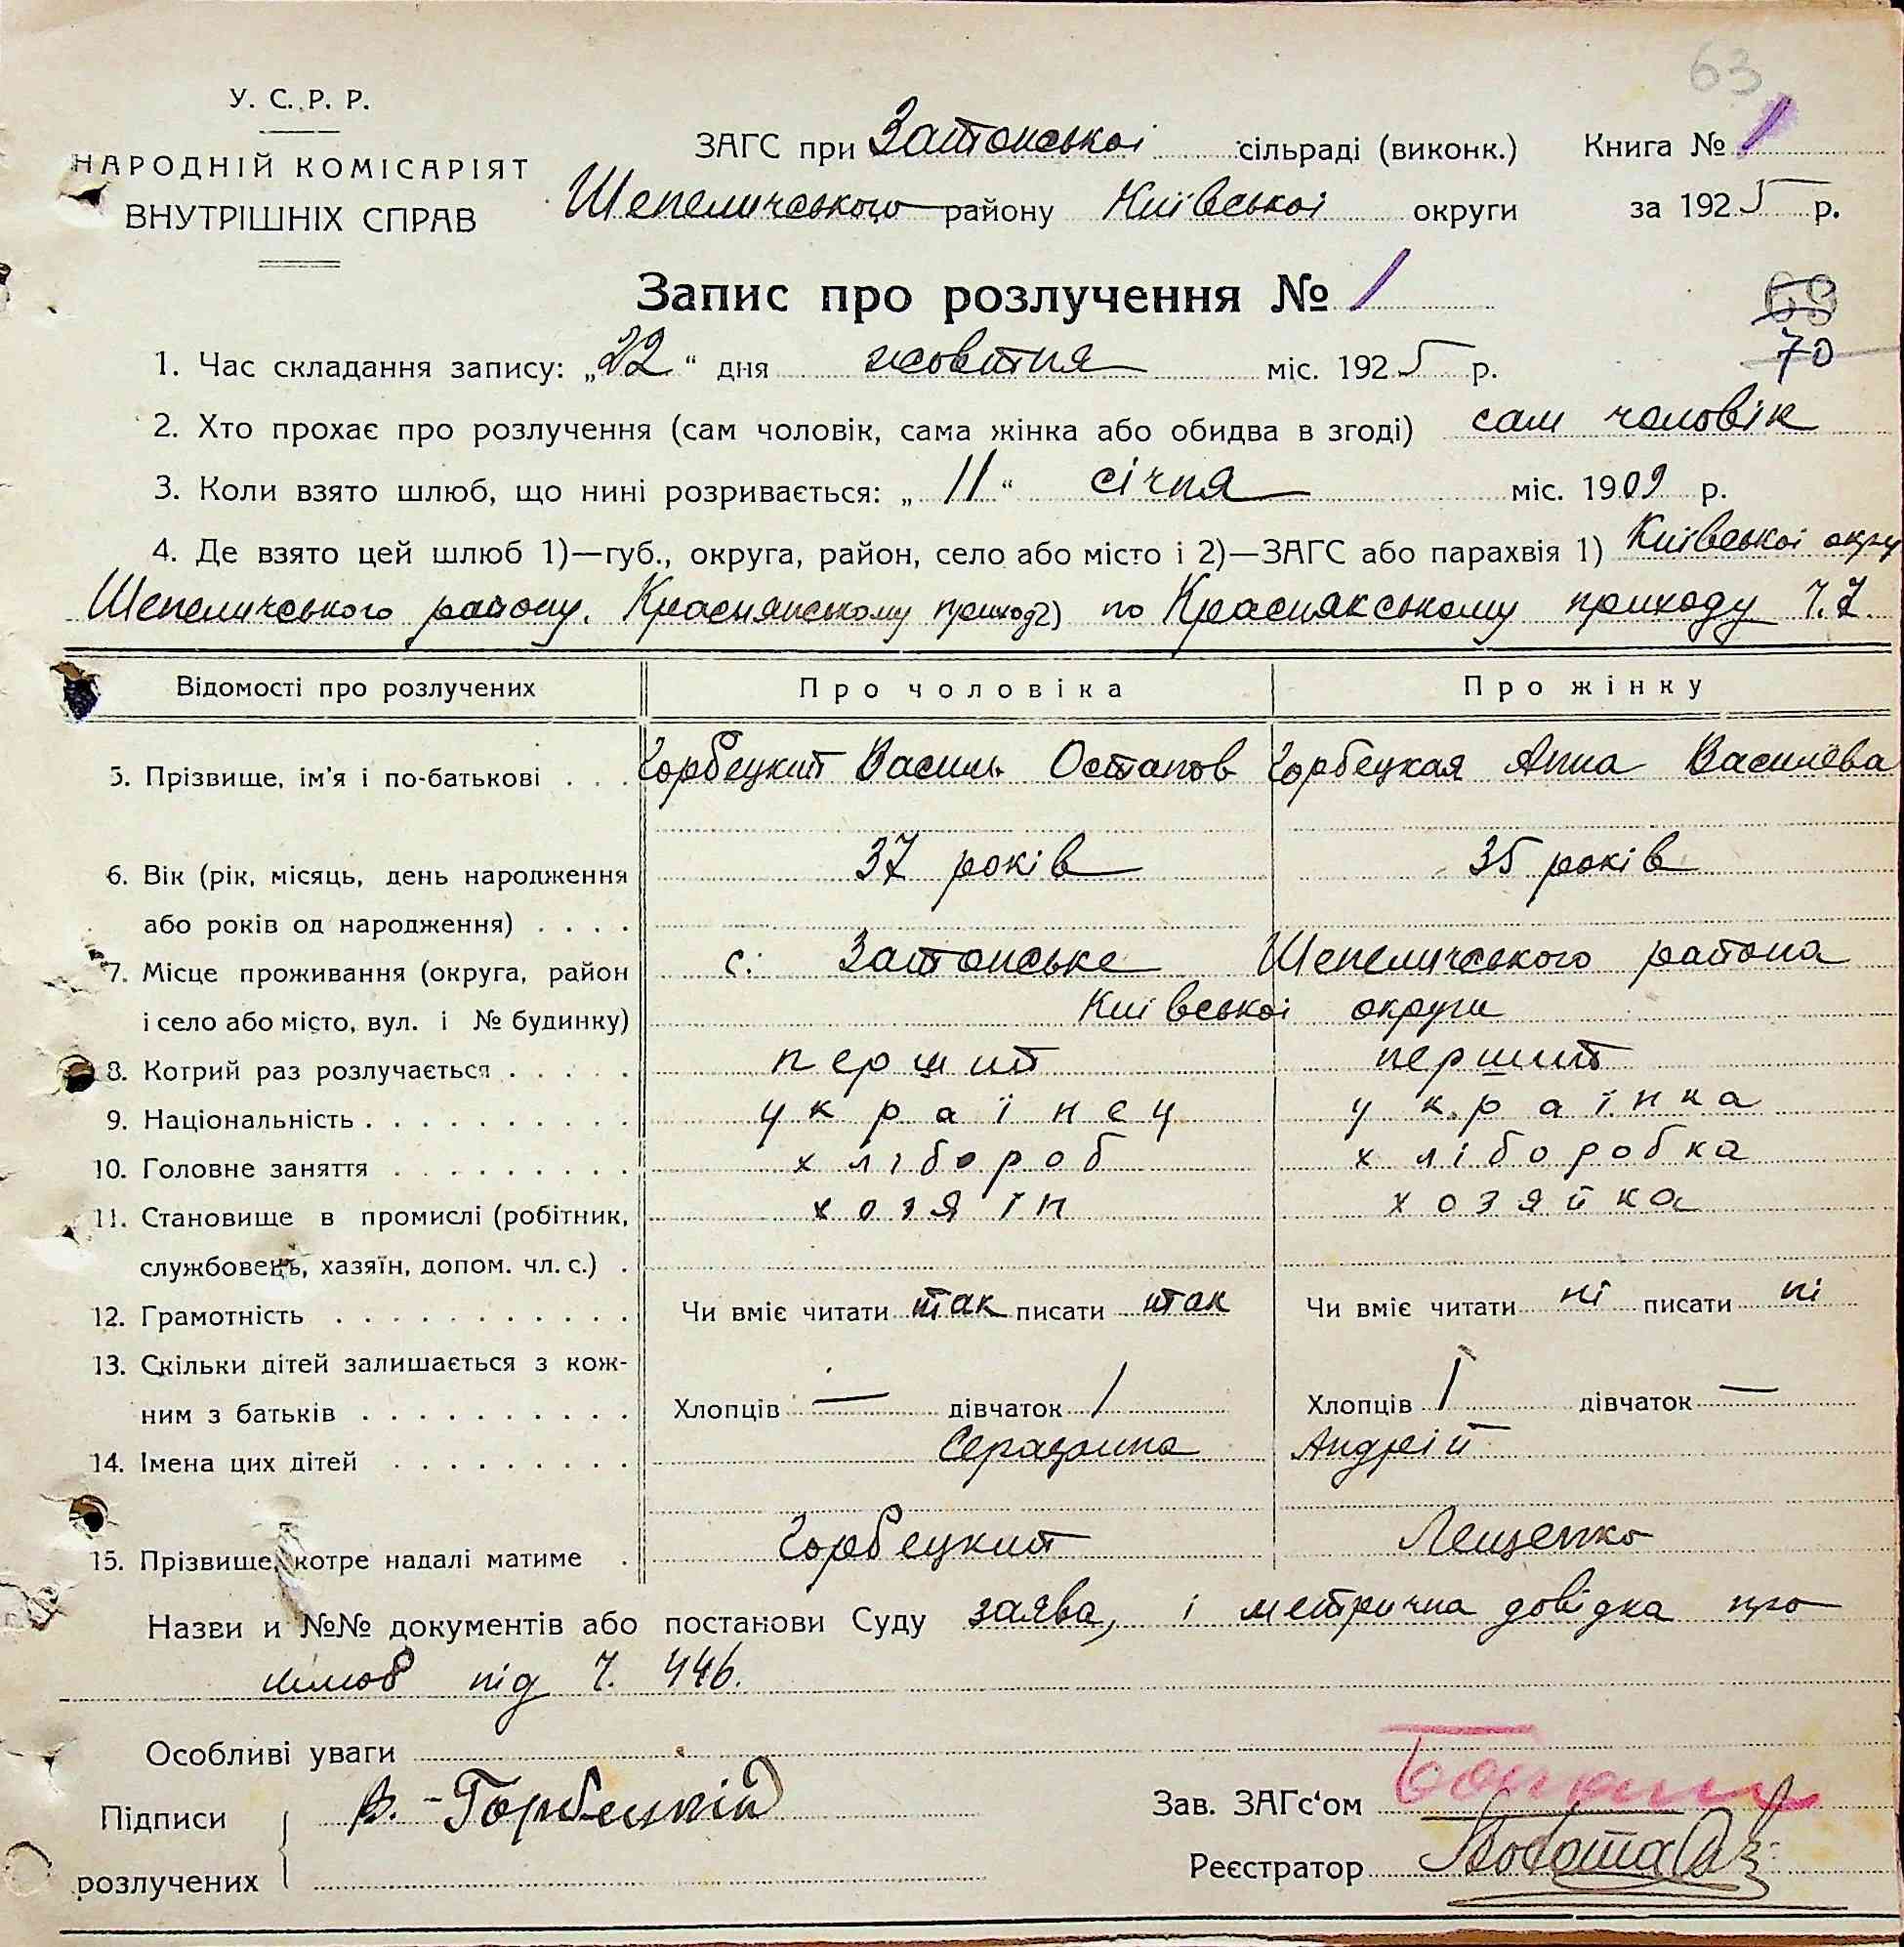 63
У. С. Р. Р.
НАРОДНІЙ КОМІСАРІЯТ
ВНУТРІШНІХ СПРАВ
ЗАГС при Затонської сільраді (виконк.) Книга № 1
Шепеличського району Київської округи за 1925 р.
Запис про розлучення № 1
69
70
1. Час складання запису: „22“ дня жовтня міс. 1925 р.
2. Хто прохає про розлучення (сам чоловік, сама жінка або обидва в згоді) сам чоловік
3. Коли взято шлюб, що нині розривається: „11“ січня міс. 1909 р.
4. Де взято цей шлюб 1)—губ., округа, район, село або місто і 2)—ЗАГС або парахвія 1) Київської окру
Шепеличського району. Краснянському приход 2) по Краснякському приходу Ч.2.
Відомості про розлучених Про чоловіка Про жінку
5. Прізвище, ім'я і по-батькові . . . Горбецкий Василь Остапов Горбецкая Анна Василёва
6. Вік (рік, місяць, день народження 37 років 35 років
або років од народження) . . . .
7. Місце проживання (округа, район с. Затонське Шепеличського района
і село або місто, вул. і № будинку) Київської округи
8. Котрий раз розлучається . . . . . перший перший
9. Національність . . . . . . . . . . українец українка
10. Головне заняття . . . . . . . . . хлібороб хліборобка
11. Становище в промислі (робітник, хозяїн хозяйка
службовець, хазяїн, допом. чл. с.) .
12. Грамотність . . . . . . . . . . . Чи вміє читати так писати так Чи вміє читати ні писати ні
13. Скільки дітей залишається з кож-
ним з батьків . . . . . . . . . . Хлопців — дівчаток 1 Хлопців 1 дівчаток —
14. Імена цих дітей . . . . . . . . . Серафина Андрій
15. Прізвище, котре надалі матиме . Горбецкий Лещенко
Назви и №№ документів або постанови Суду заява, і метрична довідка про
шлюб під Ч. 446.
Особливі уваги
Підписи В. Горбецкій Зав. ЗАГс‘ом
розлучених Реєстратор